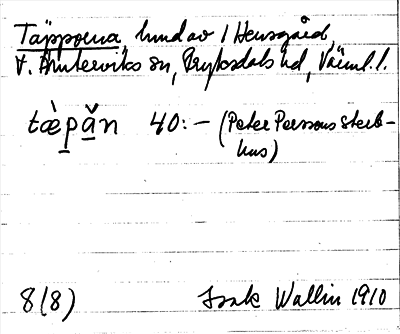 Täpporna, hmd av 1 Hensgård,
V. Ämterviks sn, Fryksdals hd, Värml. l.
tæ̀pǎ̲n 40:– (Peter Perssons sterb-
hus)
8(8) Isak Wallin 1910